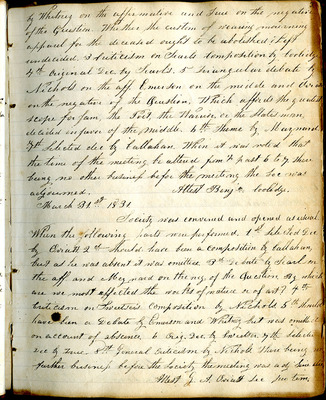 by Whitney on the affirmative and True on the negative
of the Question. Whether the custom of wearing mourning
apparel for the deceased ought to be abolished? left
undecided. 3d Criticism on Searls Composition by Cooledge
4th Original Dec by Searls. 5th Triangular debate by
Nichols on the aff. Emerson on the middle and
on the negative of the Question, Which affords the greatest
scope for fame, the Poet, the Warrior, or the Statesman,
decided in favor of the middle. 6th Theme by Maynard.
7th Selected dec by Callahan. When it was voted that
the time of the meeting be altered from past 6 to 7 there
being no other business before the meeting the Soc was
adjourned. Attest Benj Cooledge.
March 31st 1831.
Society was convened and opened as usual.
When the following parts were performed. 1st Selected Dec
by 2nd Should have been a composition by Callahan,
but as he was absent it was omitted. 3rd Debate by Searl on
the aff. and Maynard on the neg of the Question, By which
are we most affected the works of nature or of art? 4th
Criticism on Composition by Nichols 5th Should
have been a Debate by Emerson and Whitney but was omitted
on account of absence. 6 Orig. Dec. by 7th Selected
dec by True. 8th General criticism by Nichols. There being no
further business before the Society the meeting was adj
Attest J. A. Sec pro tem.